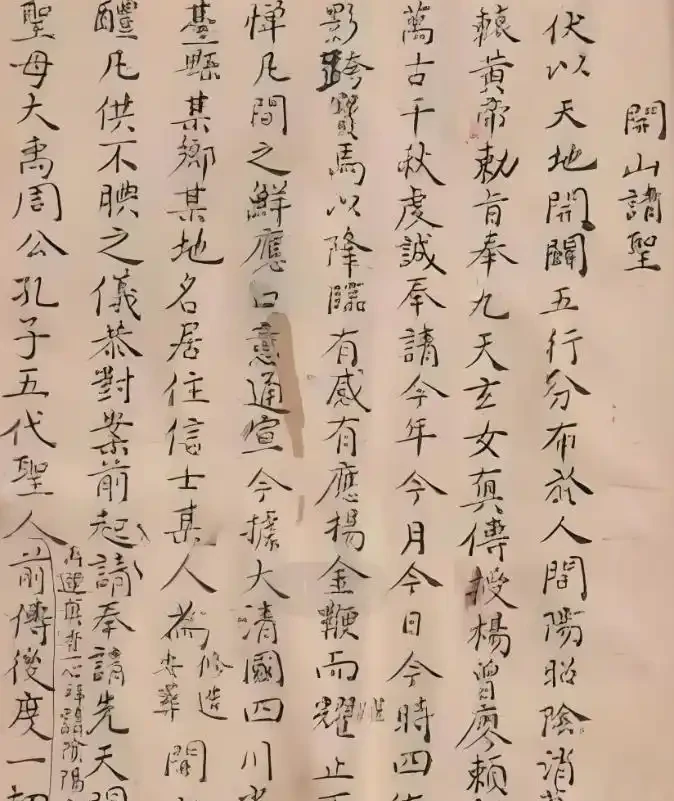 開山請聖
伏以天地開闢五行分布於人間陽昭陰消
轅黃帝勅旨奉九天玄女真傳授楊曾廖賴
萬古千秋虔誠奉請今年今月今日今時四
影跨寶馬以降臨有感有應揚金鞭而耀止
惮凡間之鮮應口意通宣今據大清國四川
縣某鄉某地名居住信士某人為修造安葬開
醴凡供不腆之儀恭對案前起請奉請先天
聖母大禹周公孔子五代聖人前傳後度一切